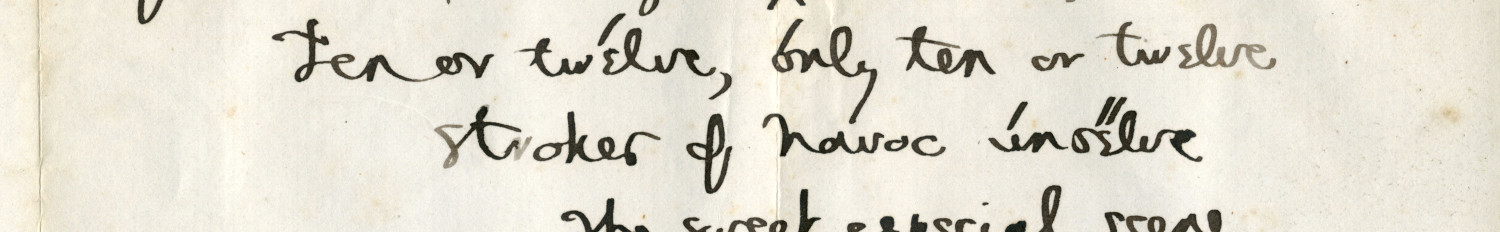 Ten or twélve, ónly ten or twelve
Strokes of havoc únsőelve
The sweet especial scene